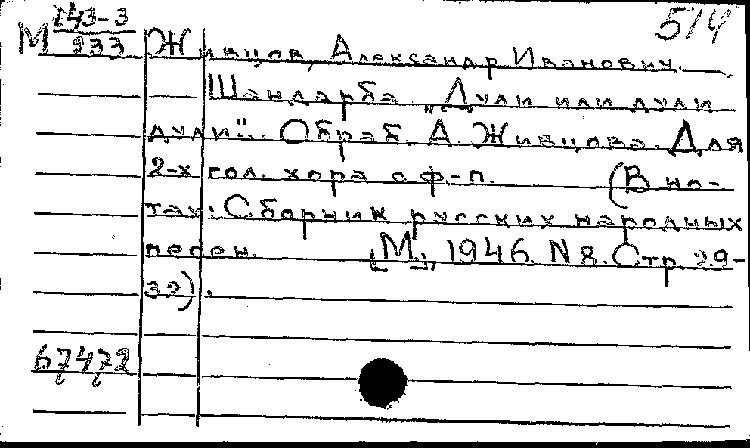 М 143-3 514
933 Живцов, Александр Иванович.
Шандарба "Дули или дули
дули". Обраб. А. Живцова. Для
2-х гол. хора с ф-п. (В но-
тах: Сборник русских народных
песен. [М.], 1946. N 8. Стр. 29-
32).
67472